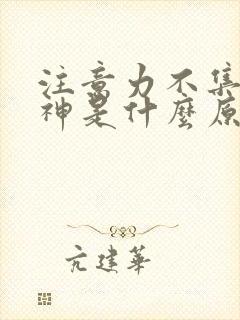 注意力不集
神是什麼原
亢建華